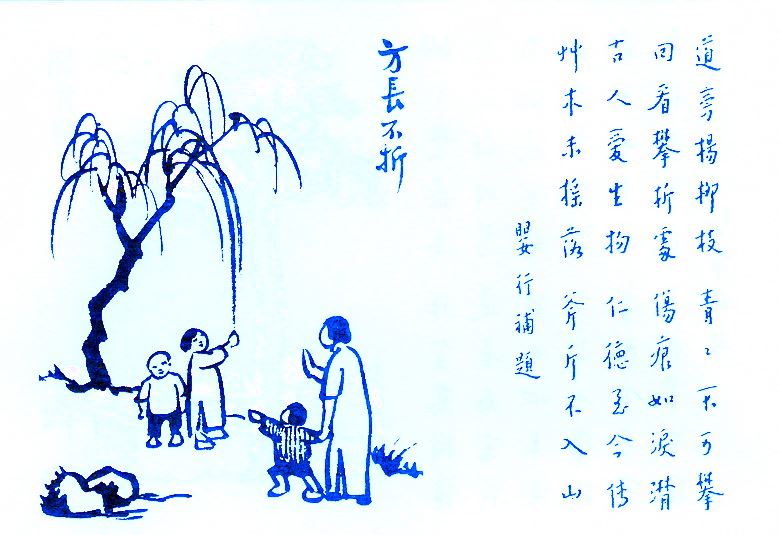 道旁楊柳枝 青〻不可攀
回看攀折處 傷痕如淚潸
古人愛生物 仁德至今傳
艸木未搖落 斧斤不入山
嬰行補題
方長不折